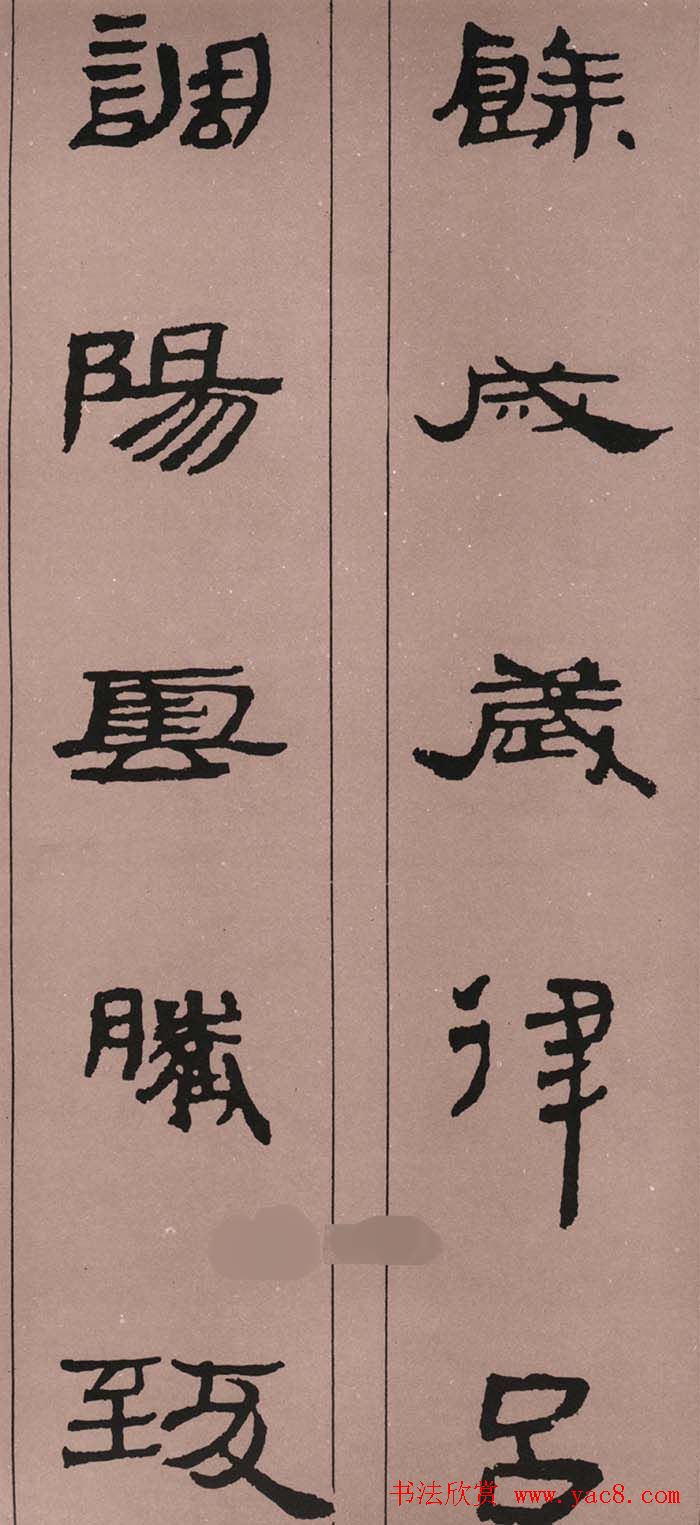 餘成歲律吕
調陽雲騰致
书法欣赏 www.yac8.com